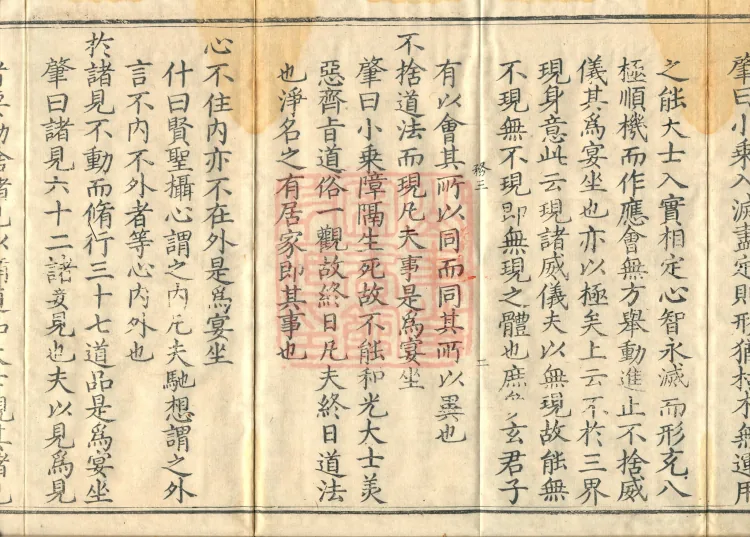 肇曰小乘入滅盡定則形猶枯木無運用
之能大士入實相定心智永滅而形充八
極順機而作應會無方舉動進止不捨威
儀其爲宴坐也亦以極矣上云不於三界
現身意此云現諸威儀夫以無現故能無
不現無不現即無現之體也庶玄君子
務三
二
有以會其所以同而同其所以異也
不捨道法而現凡夫事是爲宴坐
肇曰小乘障隔生死故不能和光大士美
惡齊旨道俗一觀故終日凡夫終日道法
也淨名之有居家即其事也
心不住內亦不在外是爲宴坐
什曰賢聖攝心謂之內凡夫馳想謂之外
言不內不外者等心內外也
於諸見不動而脩行三十七道品是爲宴坐
肇曰諸見六十二諸妄見也夫以見爲見